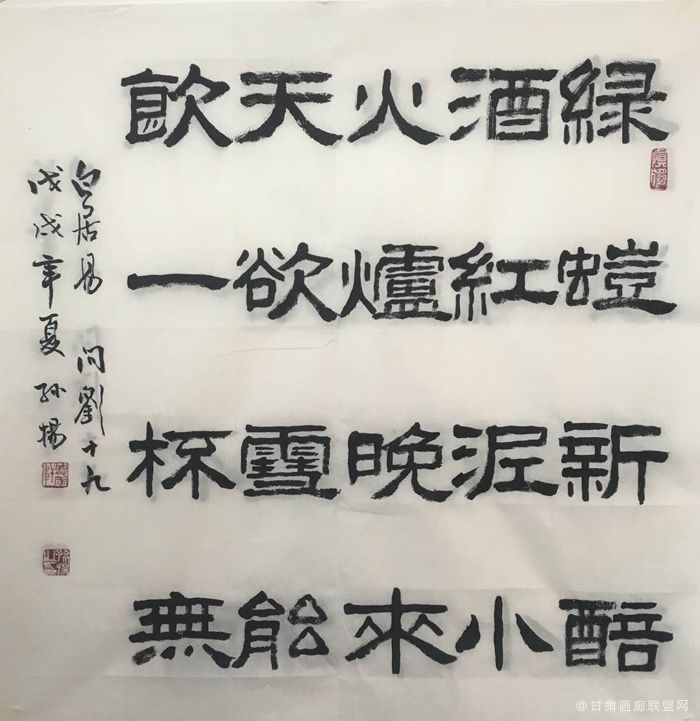 緑螘新醅
酒紅泥小
火爐晚來
天欲雪能
飲一杯無
白居易 问劉十九
戊戌年夏 孙
@甘肃画廊联盟网